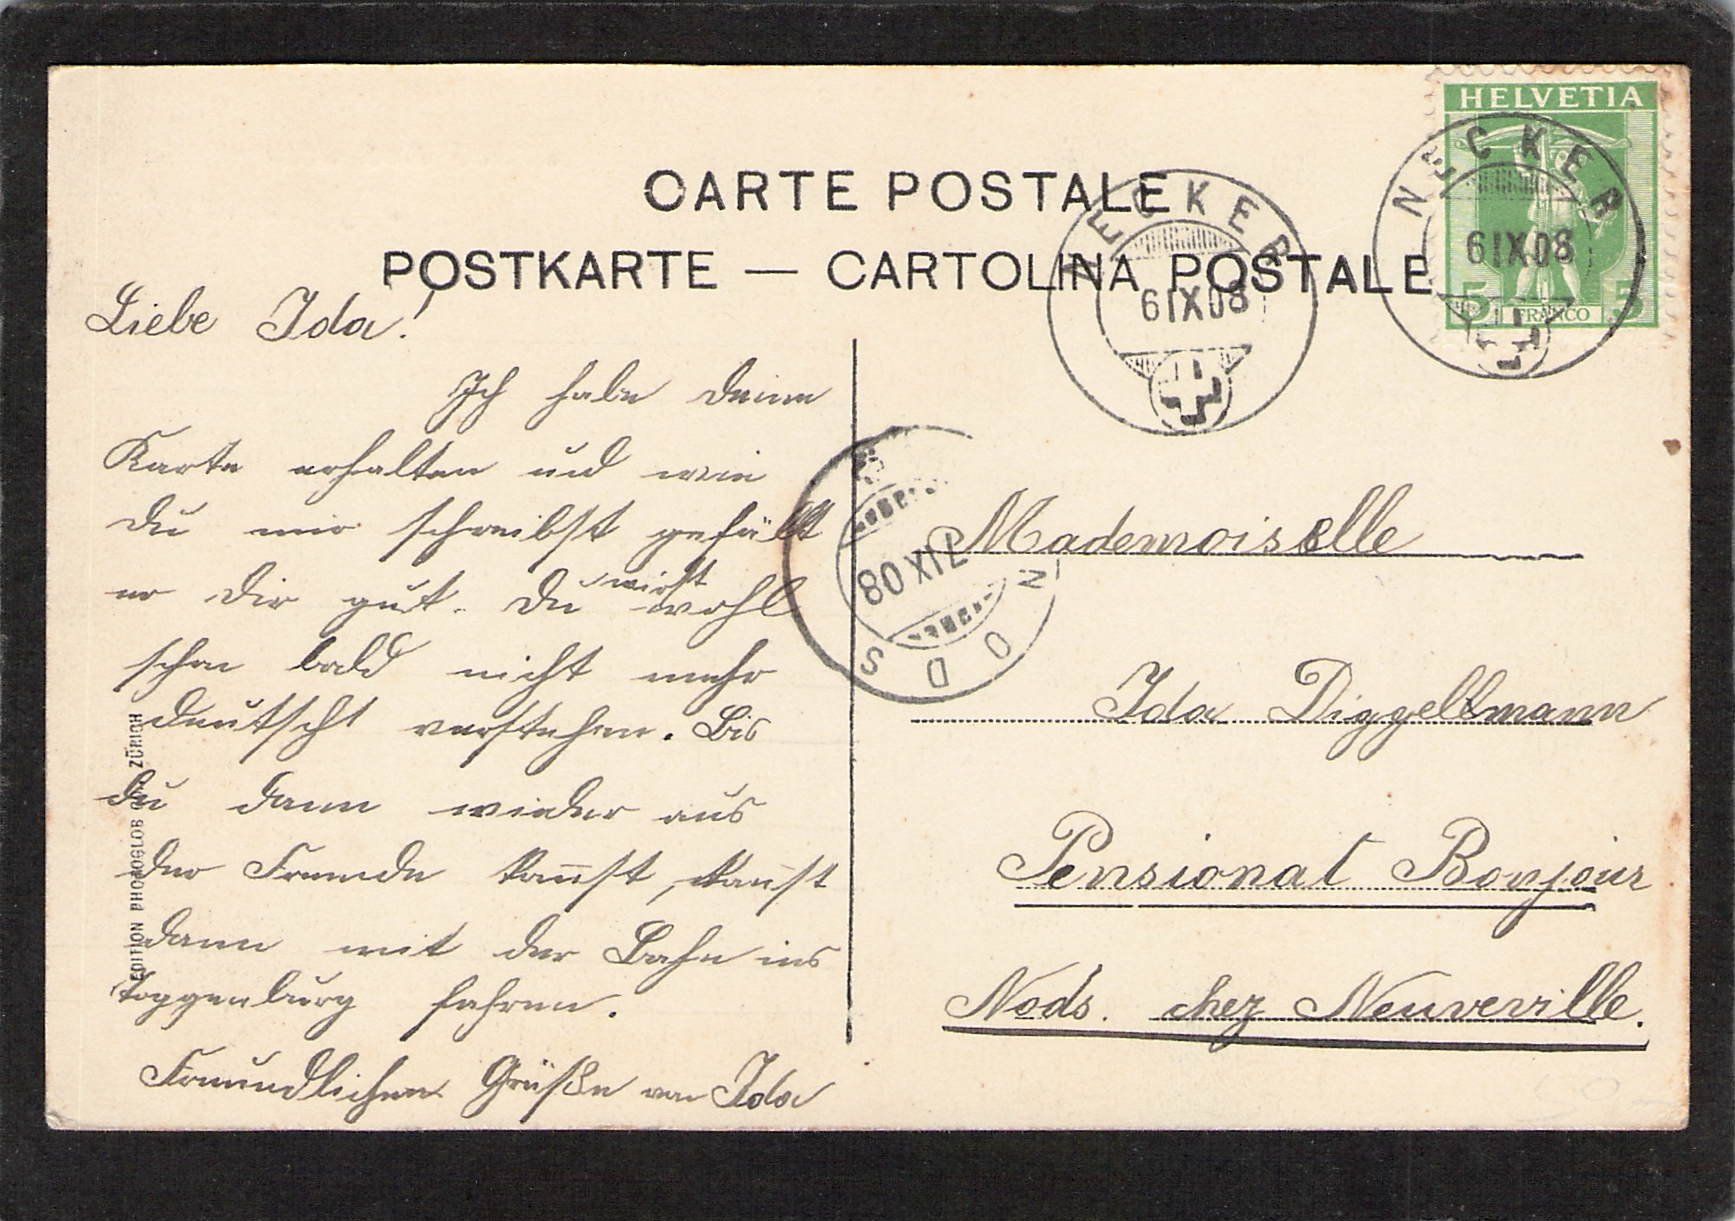 CARTE POSTALE
POSTKARTE — CARTOLINA POSTALE
HELVETIA
5 FRANCO 5
NECKER
6 IX 08
NECKER
6 IX 08
NODS
7 IX 08
Liebe Ida!
Ich habe deine
Karte erhalten und wie
du mir schreibst gefällt
er dir gut. Du wirst wohl
schon bald nicht mehr
deutsch verstehen. Bis
du dann wieder aus
der Fremde kannst, kannst
dann mit der Bahn ins
Toggenburg fahren.
Freundlichen Grüße von Ida
Mademoiselle
Ida Diggellmann
Pensionat Bonjour
Nods. chez Neuveville.
EDITION PHOTOGLOB ZÜRICH